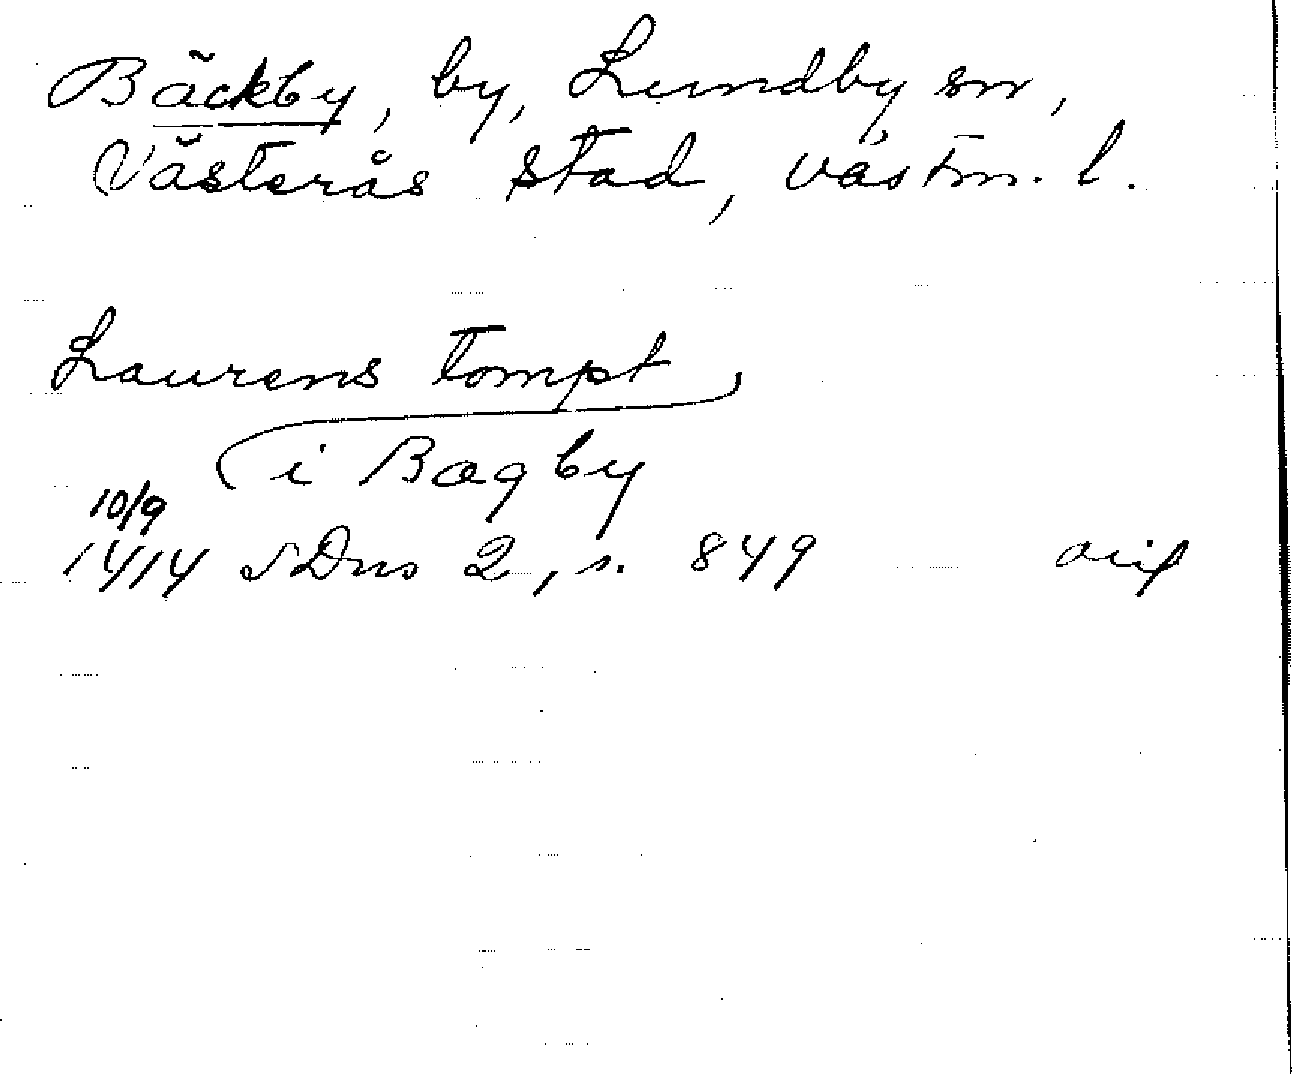 Bäckby, by, Lundby sn,
Västerås stad, Västm. l.
Laurens tompt
i Bagby
10/9
1414 SDns 2, s. 849 orig